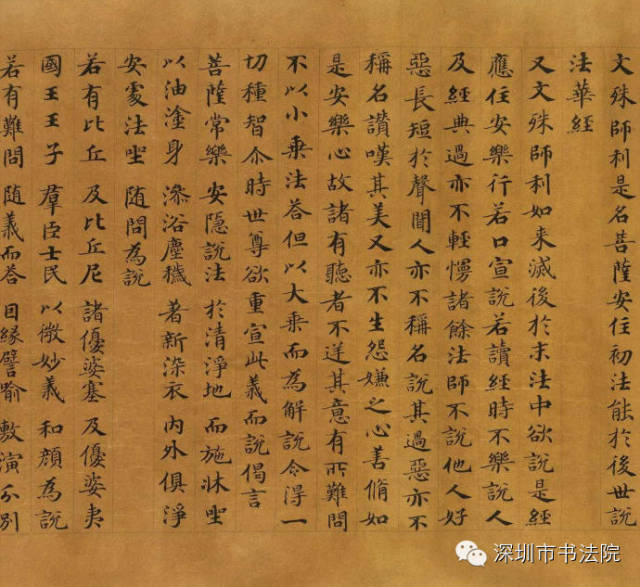 文殊師利是名菩薩安住初法能於後世說
法華經
又文殊師利如来滅後於末法中欲說是經
應住安樂行若口宣說若讀經時不樂說人
及經典過亦不輕慢諸餘法師不說他人好
惡長短於聲聞人亦不稱名說其過惡亦不
稱名讚嘆其美又亦不生怨嫌之心善脩如
是安樂心故諸有聽者不逆其意有所難問
不以小乗法荅但以大乗而為解說令得一
切種智尒時世尊欲重宣此義而說偈言
菩薩常樂 安隱說法 於清淨地 而施牀坐
以油塗身 澡浴塵穢 著新染衣 內外俱淨
安處法坐 随問為說
若有比丘 及比丘尼 諸優婆塞 及優婆夷
國王王子 羣臣士民 以微妙義 和顏為說
若有難問 随義而荅 因緣譬喻 敷演分别
深圳市书法院